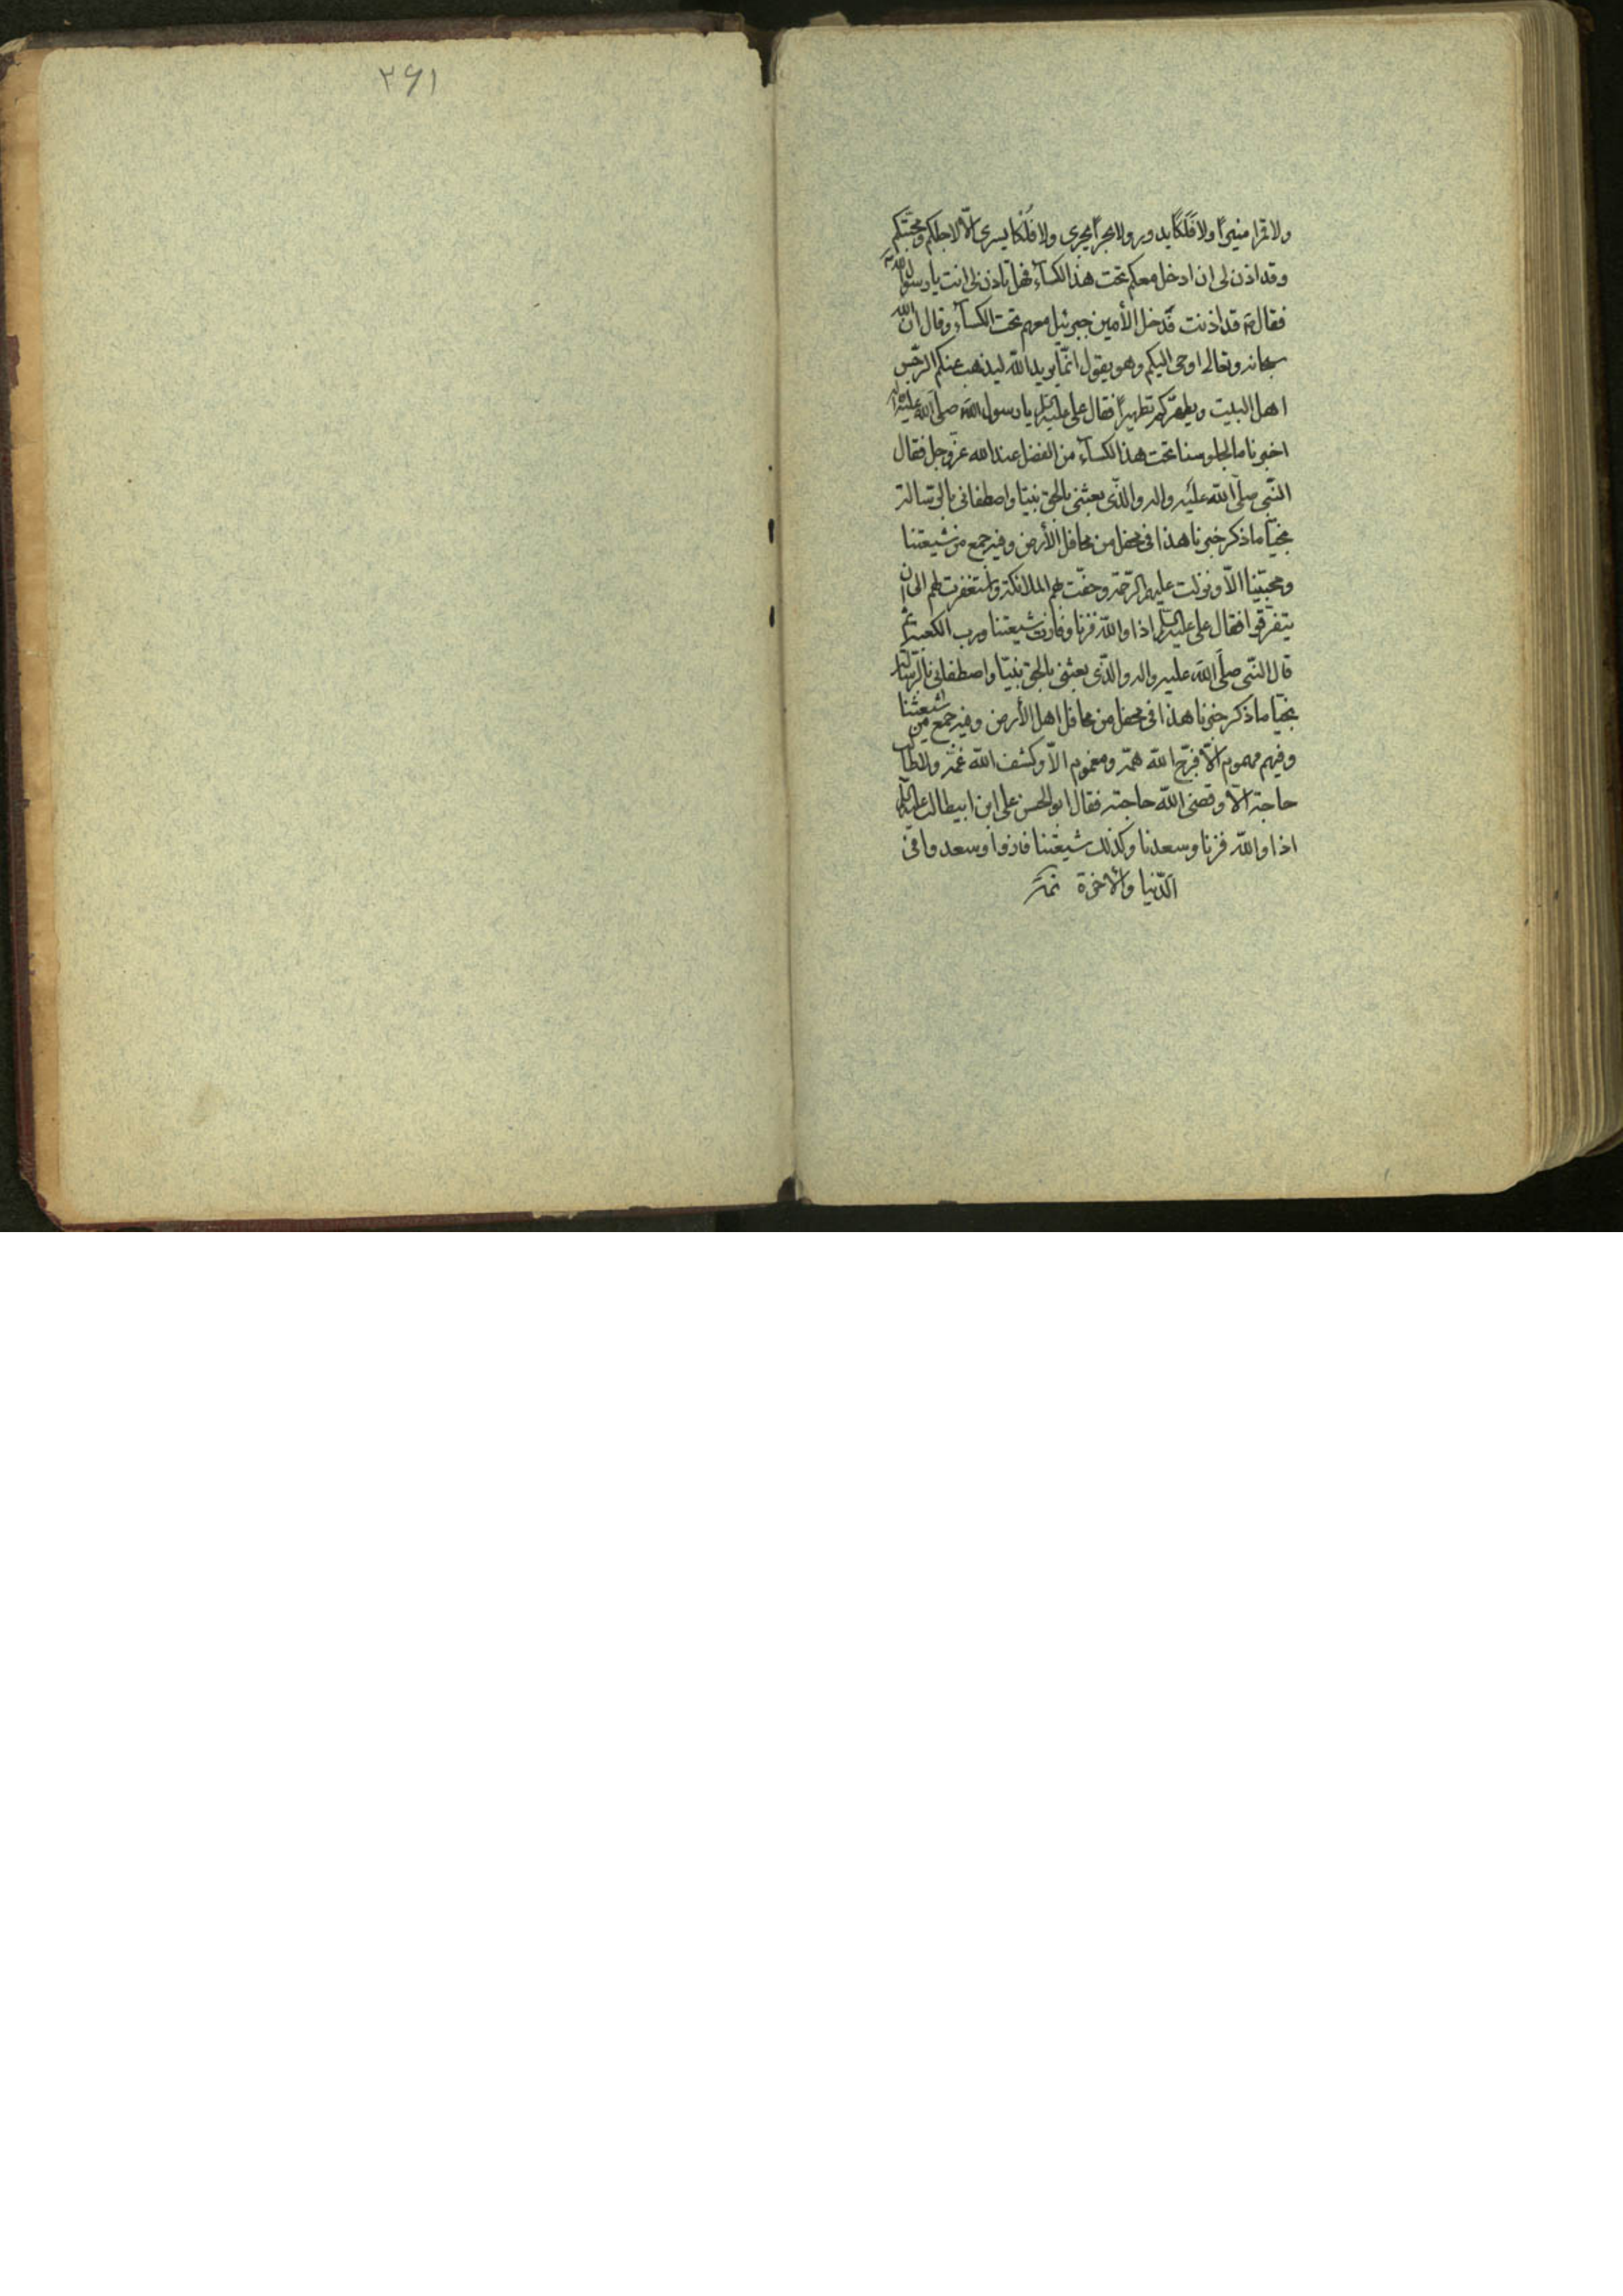 ولا قمرا منيراً ولا فَلَكاً يدور ولا بحراً يجرى ولا فُلْكا يسرى الّا لاجلكم ومحبّتكم
وقد اذن لى ان ادخل معكم تحت هذا الكسآء فهل تاذن لى انت يا رسول الله ص
فقال ص قد اذنت فدخل الأمين جبرئيل معهم تحت الكسآء وقال انّ الله
سبحانه وتعالى اوحى اليكم وهو يقول انّما يريد اللّه ليذهب عنكم الرّجس
اهل البيت ويطهّركم تطهيراً فقال على عليه السلم يا رسول الله صلى الله عليه واله
اخبرنا ما لجلوسنا تحت هذا الكسآء من الفضل عند الله عز وجل فقال
النّبى صلّى الله عليه واله والّذى بعثنى بالحق نبيّا واصطفانى بالرّسالة
نجيّا ما ذكر خبرنا هذا فى محفل من محافل الأرض وفيه جمع من شيعتنا
ومحبّينا الّا ونزلت عليهم الرّحمة وحفّت بهم الملائكة واستغفرت لهم الى ان
يتفرّقوا فقال على عليه السلم اذا واللّه فزنا وفازت شيعتنا ورب الكعبة ثم
قال النّبى صلّى الله عليه واله والّذى بعثنى بالحق نبيّا واصطفانى بالرّسالة
نجيّا ما ذكر خبرنا هذا فى محفل من محافل اهل الأرض وفيه جمع من شيعتنا
وفيهم مهموم الّا فرّج اللّه همّه ومغموم الّا وكشف اللّه غمّه ولا طالب
حاجة الّا وقضى اللّه حاجته فقال ابو الحسن على ابن ابيطالب عليه السلم
اذا واللّه فزنا وسعدنا وكذلك شيعتنا فازوا وسعدوا فى
الدّنيا والآخرة تمت
۲۶۱